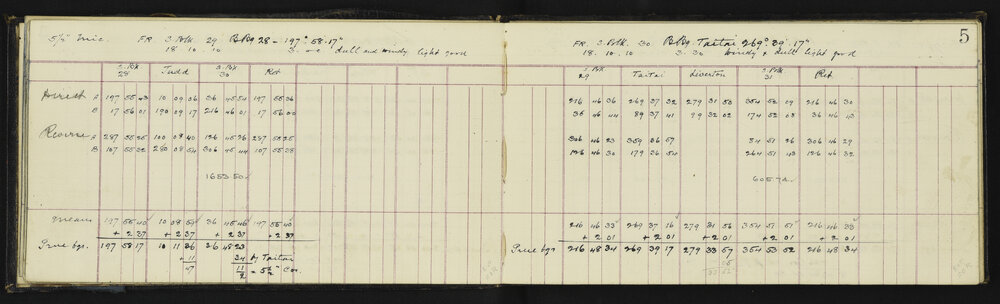 5½" Mic. FR. S. Polk. 29 BBg 28 - 197° 58' 17"
18. 10. 10 dull and windy light good
S. Polk 28 Judd S. Polk 30 Ret
Direct A 197 55 43 10 09 36 36 45 54 197 55 36
B 17 56 01 190 09 17 216 46 01 17 56 00
Reverse A 287 55 25 100 08 40 126 45 26 287 55 25
B 107 55 32 280 08 54 306 45 44 107 55 28
1653.50
Mean 197 55 40 10 08 59 36 45 46 197 55 40
+ 2 37 + 2 37 + 2 37 + 2 37
True bgs. 197 58 17 10 11 36 36 48 23
+ 11 34 by Taitai
47 11/2 = 5½" Cor
5
FR. S. Polk. 30 BBg. Taitai 269° 39' 17"
18. 10. 10 3. 30 Windy & dull light good
S. Polk 29 Taitai Liverton S. Polk 31 Ret
216 46 36 269 37 32 279 31 53 354 52 09 216 46 30
36 46 44 89 37 41 99 32 02 174 52 08 36 46 43
306 46 23 359 36 57 84 51 26 306 46 29
126 46 30 179 36 54 264 51 43 126 46 32
605.72
216 46 33 269 37 16 279 31 56 354 51 51 216 46 33
+ 2 01 + 2 01 + 2 01 + 2 01 + 2 01
True bgs 216 48 34 269 39 17 279 33 57 354 53 52 216 48 34